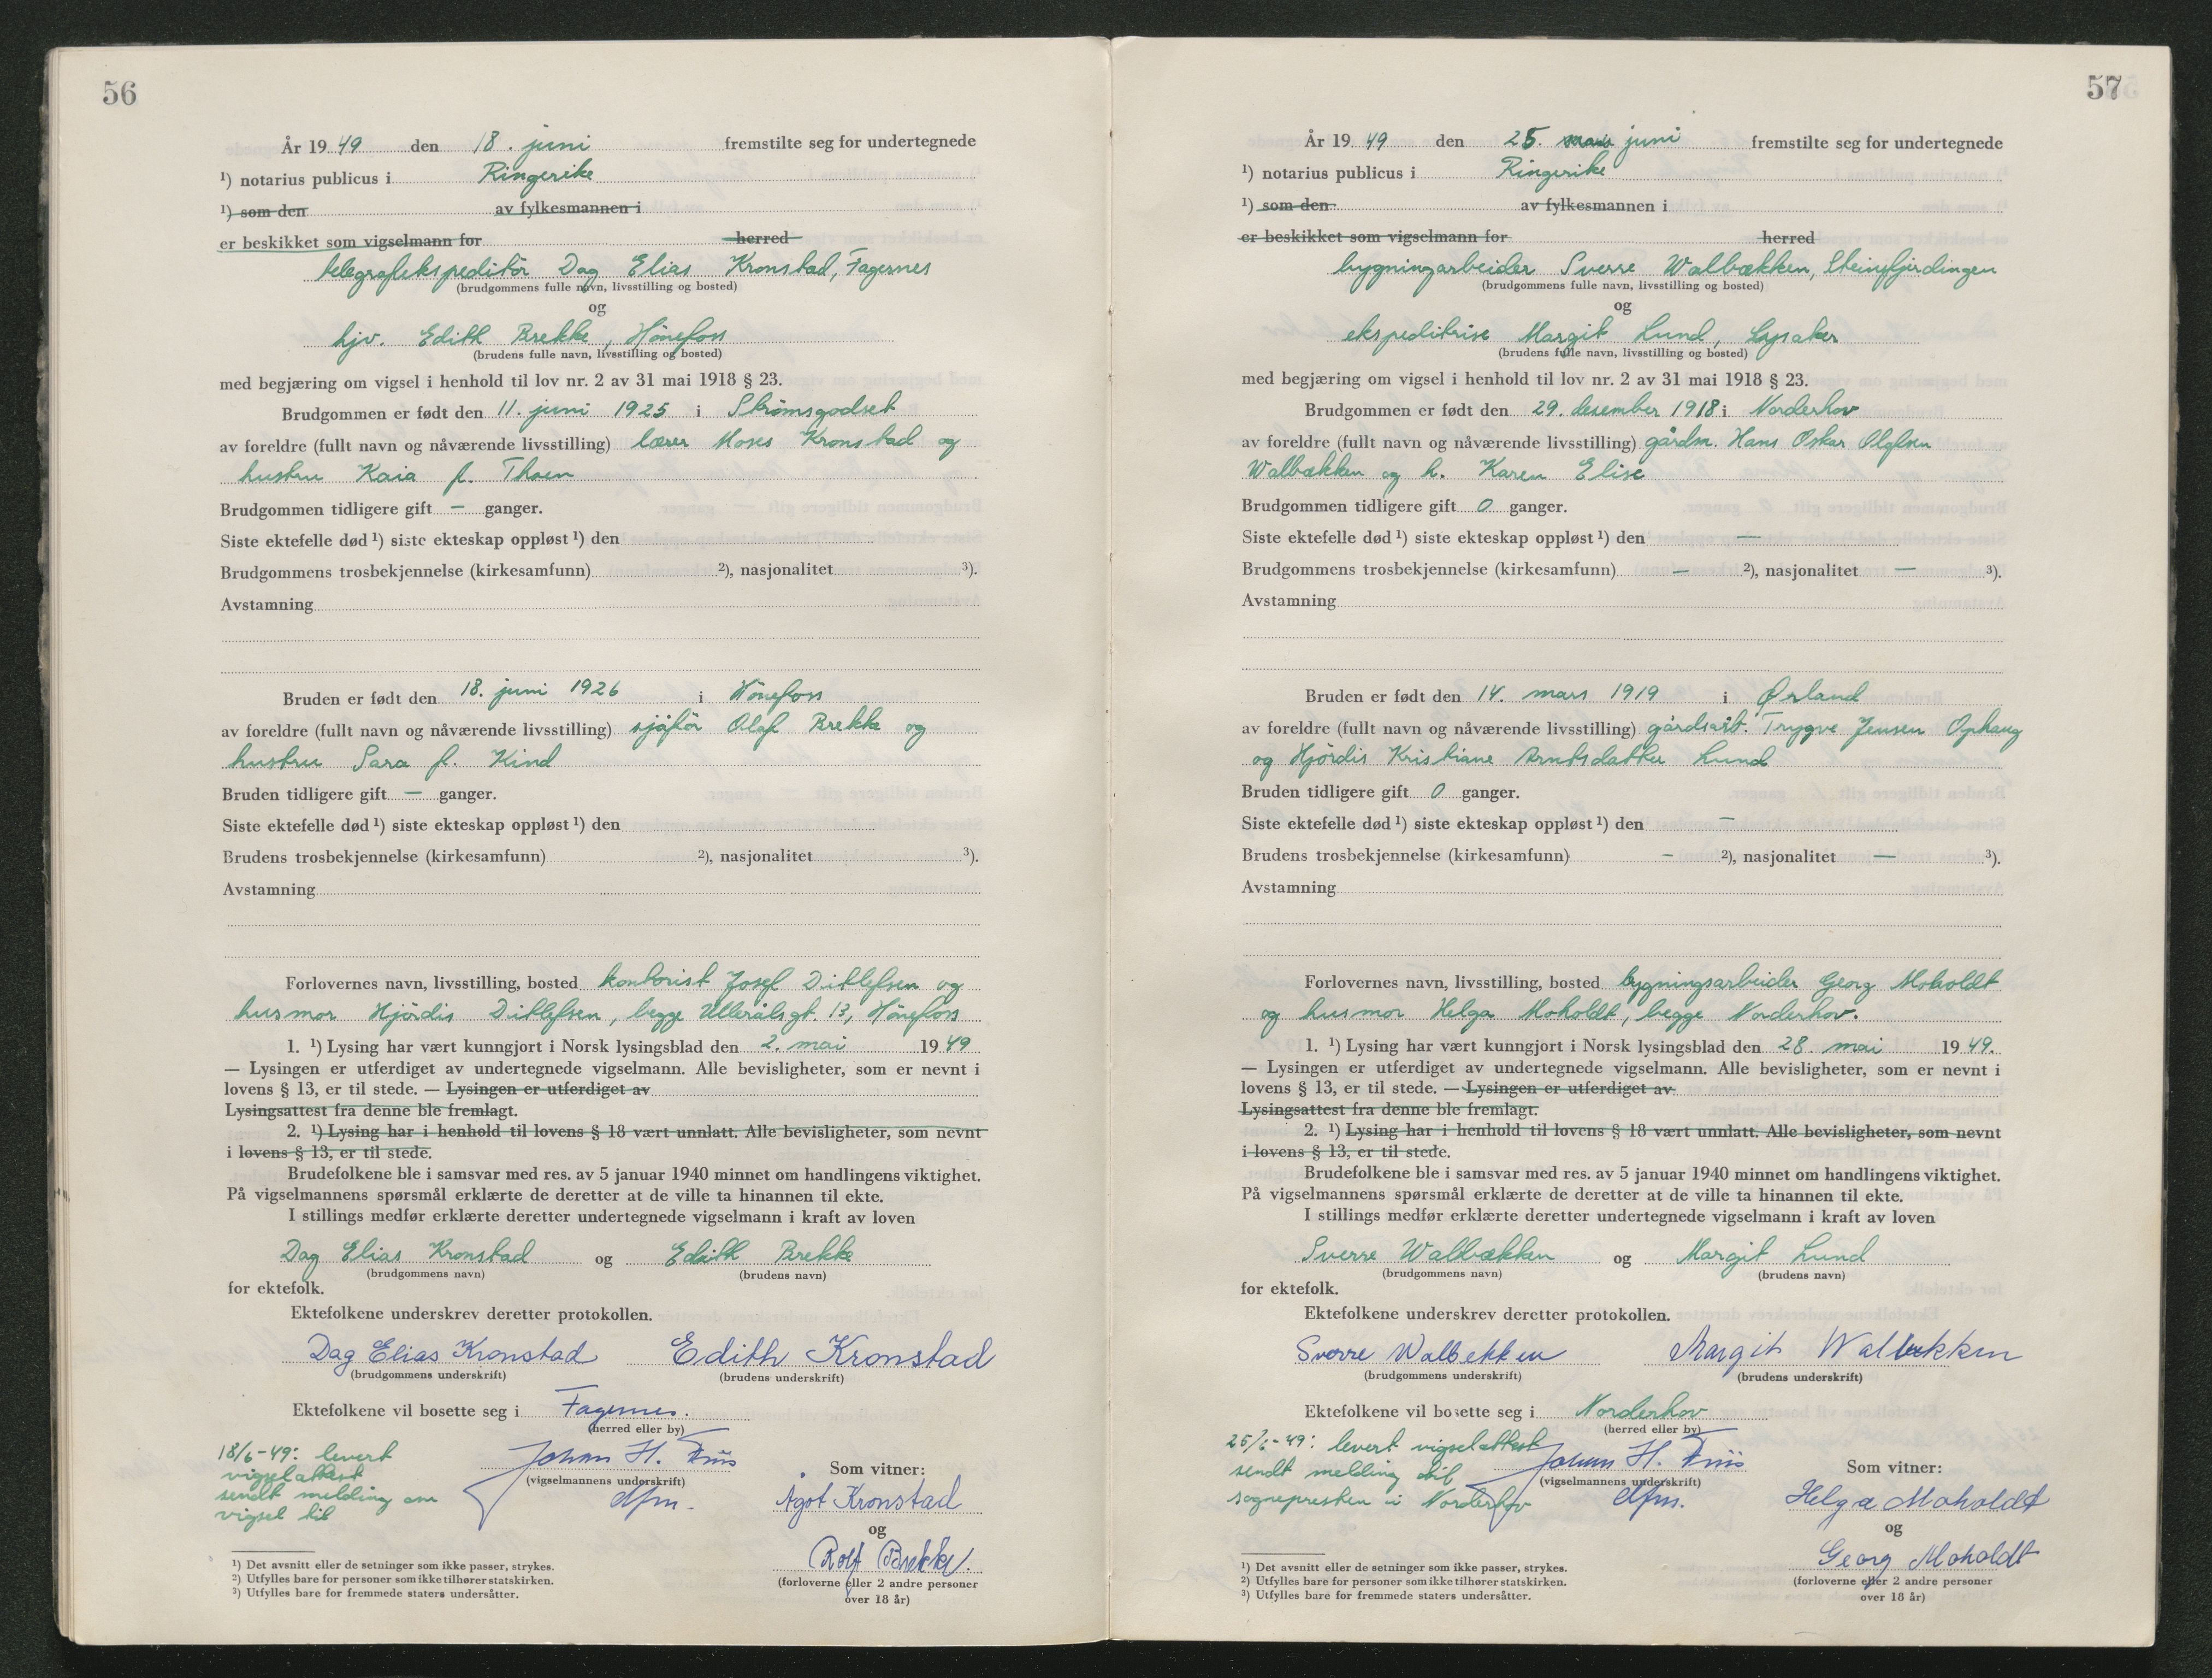 56
År 1949 den 18. juni fremstilte seg for undertegnede
¹) notarius publicus i Ringerike
¹) som den av fylkesmannen i
er beskikket som vigselmann for herred
telegrafekspeditör Dag Elias Kronstad, Fagernes
(brudgommens fulle navn, livsstilling og bosted)
og
hjv. Edith Brekke, Hönefoss
(brudens fulle navn, livsstilling og bosted)
med begjæring om vigsel i henhold til lov nr. 2 av 31 mai 1918 § 23.
Brudgommen er født den 11. juni 1925 i Strömsgodset
av foreldre (fullt navn og nåværende livsstilling) lærer Moses Kronstad og
hustru Kaia f. Thoen
Brudgommen tidligere gift — ganger.
Siste ektefelle død¹) siste ekteskap oppløst¹) den
Brudgommens trosbekjennelse (kirkesamfunn) ²), nasjonalitet ³).
Avstamning
Bruden er født den 18. juni 1926 i Hönefoss
av foreldre (fullt navn og nåværende livsstilling) sjåför Olaf Brekke og
hustru Sara f. Kind
Bruden tidligere gift — ganger.
Siste ektefelle død¹) siste ekteskap oppløst¹) den
Brudens trosbekjennelse (kirkesamfunn) ²), nasjonalitet ³).
Avstamning
Forlovernes navn, livsstilling, bosted kontorist Josef Ditlefsen og
husmor Hjördis Ditlefsen, begge Ullerålsgt. 13, Hönefoss
1. ¹) Lysing har vært kunngjort i Norsk lysingsblad den 2. mai 1949
— Lysingen er utferdiget av undertegnede vigselmann. Alle bevisligheter, som er nevnt i
lovens § 13, er til stede. — Lysingen er utferdiget av
Lysingsattest fra denne ble fremlagt.
2. ¹) Lysing har i henhold til lovens § 18 vært unnlatt. Alle bevisligheter, som nevnt
i lovens § 13, er til stede.
Brudefolkene ble i samsvar med res. av 5 januar 1940 minnet om handlingens viktighet.
På vigselmannens spørsmål erklærte de deretter at de ville ta hinannen til ekte.
I stillings medfør erklærte deretter undertegnede vigselmann i kraft av loven
Dag Elias Kronstad og Edith Brekke
(brudgommens navn) (brudens navn)
for ektefolk.
Ektefolkene underskrev deretter protokollen.
Dag Elias Kronstad Edith Kronstad
(brudgommens underskrift) (brudens underskrift)
Ektefolkene vil bosette seg i Fagernes.
(herred eller by)
18/6-49: levert
vigselattest
sendt melding om
vigsel til
Johan H. Friis
(vigselmannens underskrift)
dfm.
Som vitner:
Ågot Kronstad
og
Rolf Brekke.
(forloverne eller 2 andre personer
over 18 år)
¹) Det avsnitt eller de setninger som ikke passer, strykes.
²) Utfylles bare for personer som ikke tilhører statskirken.
³) Utfylles bare for fremmede staters undersåtter.
57
År 1949 den 25. mars juni fremstilte seg for undertegnede
¹) notarius publicus i Ringerike
¹) som den av fylkesmannen i
er beskikket som vigselmann for herred
bygningarbeider Sverre Walbækken, Steinsfjerdingen
(brudgommens fulle navn, livsstilling og bosted)
og
ekspeditrise Margit Lund, Lysaker
(brudens fulle navn, livsstilling og bosted)
med begjæring om vigsel i henhold til lov nr. 2 av 31 mai 1918 § 23.
Brudgommen er født den 29. desember 1918 i Norderhov
av foreldre (fullt navn og nåværende livsstilling) gårdm. Hans Oskar Olafsen
Walbækken og h. Karen Elise
Brudgommen tidligere gift 0 ganger.
Siste ektefelle død¹) siste ekteskap oppløst¹) den —
Brudgommens trosbekjennelse (kirkesamfunn) — ²), nasjonalitet — ³).
Avstamning
Bruden er født den 14. mars 1919 i Ørland
av foreldre (fullt navn og nåværende livsstilling) gårdsarb. Trygve Jensen Ophaug
og Hjördis Kristiane Arntsdatter Lund
Bruden tidligere gift 0 ganger.
Siste ektefelle død¹) siste ekteskap oppløst¹) den —
Brudens trosbekjennelse (kirkesamfunn) — ²), nasjonalitet — ³).
Avstamning
Forlovernes navn, livsstilling, bosted bygningsarbeider Georg Moholdt
og husmor Helga Moholdt, begge Norderhov.
1. ¹) Lysing har vært kunngjort i Norsk lysingsblad den 28. mai 1949.
— Lysingen er utferdiget av undertegnede vigselmann. Alle bevisligheter, som er nevnt i
lovens § 13, er til stede. — Lysingen er utferdiget av
Lysingsattest fra denne ble fremlagt.
2. ¹) Lysing har i henhold til lovens § 18 vært unnlatt. Alle bevisligheter, som nevnt
i lovens § 13, er til stede.
Brudefolkene ble i samsvar med res. av 5 januar 1940 minnet om handlingens viktighet.
På vigselmannens spørsmål erklærte de deretter at de ville ta hinannen til ekte.
I stillings medfør erklærte deretter undertegnede vigselmann i kraft av loven
Sverre Walbækken og Margit Lund
(brudgommens navn) (brudens navn)
for ektefolk.
Ektefolkene underskrev deretter protokollen.
Sverre Walbekken Margit Walbekken
(brudgommens underskrift) (brudens underskrift)
Ektefolkene vil bosette seg i Norderhov
(herred eller by)
25/6-49: levert vigselattest
sendt melding til
sognepresten i Norderhov
Johan H. Friis
(vigselmannens underskrift)
dfm.
Som vitner:
Helga Moholdt
og
Georg Moholdt
(forloverne eller 2 andre personer
over 18 år)
¹) Det avsnitt eller de setninger som ikke passer, strykes.
²) Utfylles bare for personer som ikke tilhører statskirken.
³) Utfylles bare for fremmede staters undersåtter.